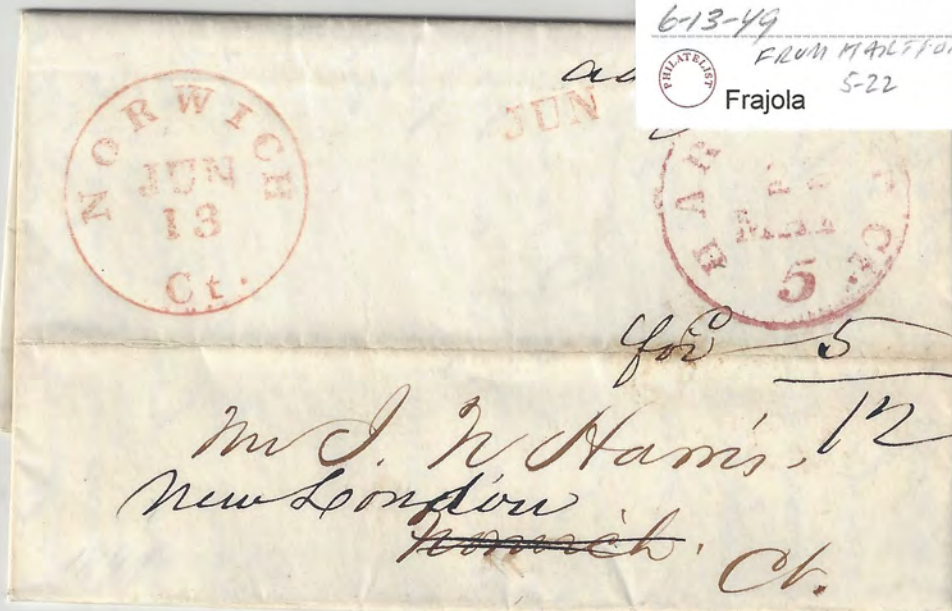 6-13-49
FROM HARTFO
5-22
PHILATELIST
Frajola
NORWICH
JUN
13
Ct.
JUN
HAR CT.
MAY
5
for 5
12
Mr J. N Harris,
New London
Norwich.
Ct.